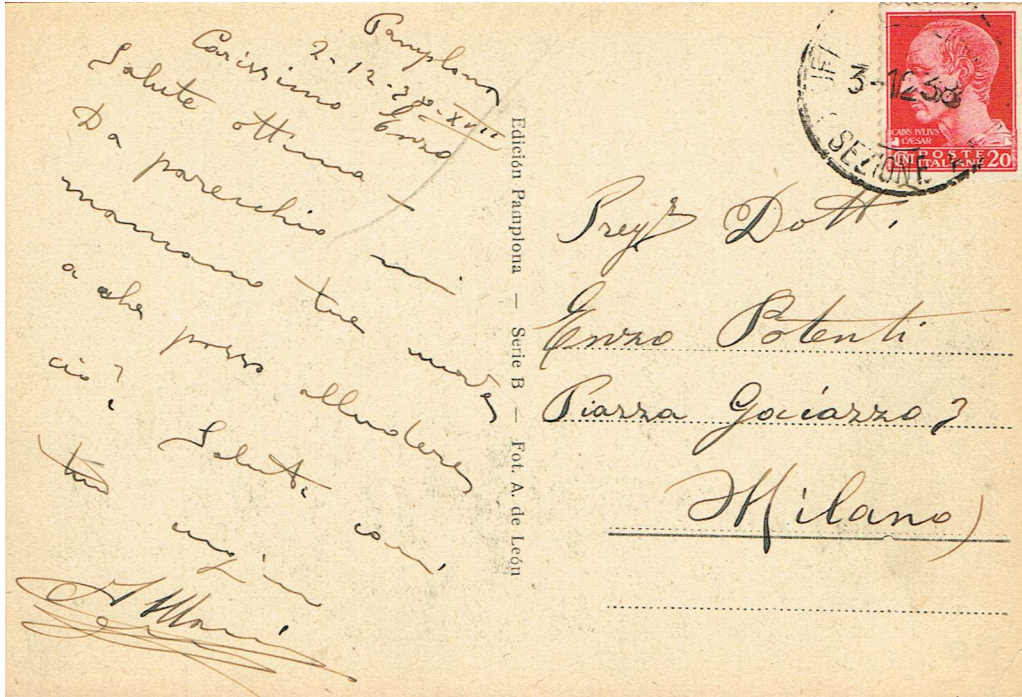 Pamplona
2-12-38-XVII
Carissimo Enzo
Salute ottima -
Da parecchio mi
mancano tue
a che posso alludere
ciò? Saluti cari
tuo
Edición Pamplona — Serie B — Fot. A. de León
3-12-38
SEZIONE
CAIUS IVLIUS
CÆSAR
POSTE
ITALIANE 20
Preg. Dott.
Enzo Potenti
Piazza
Milano